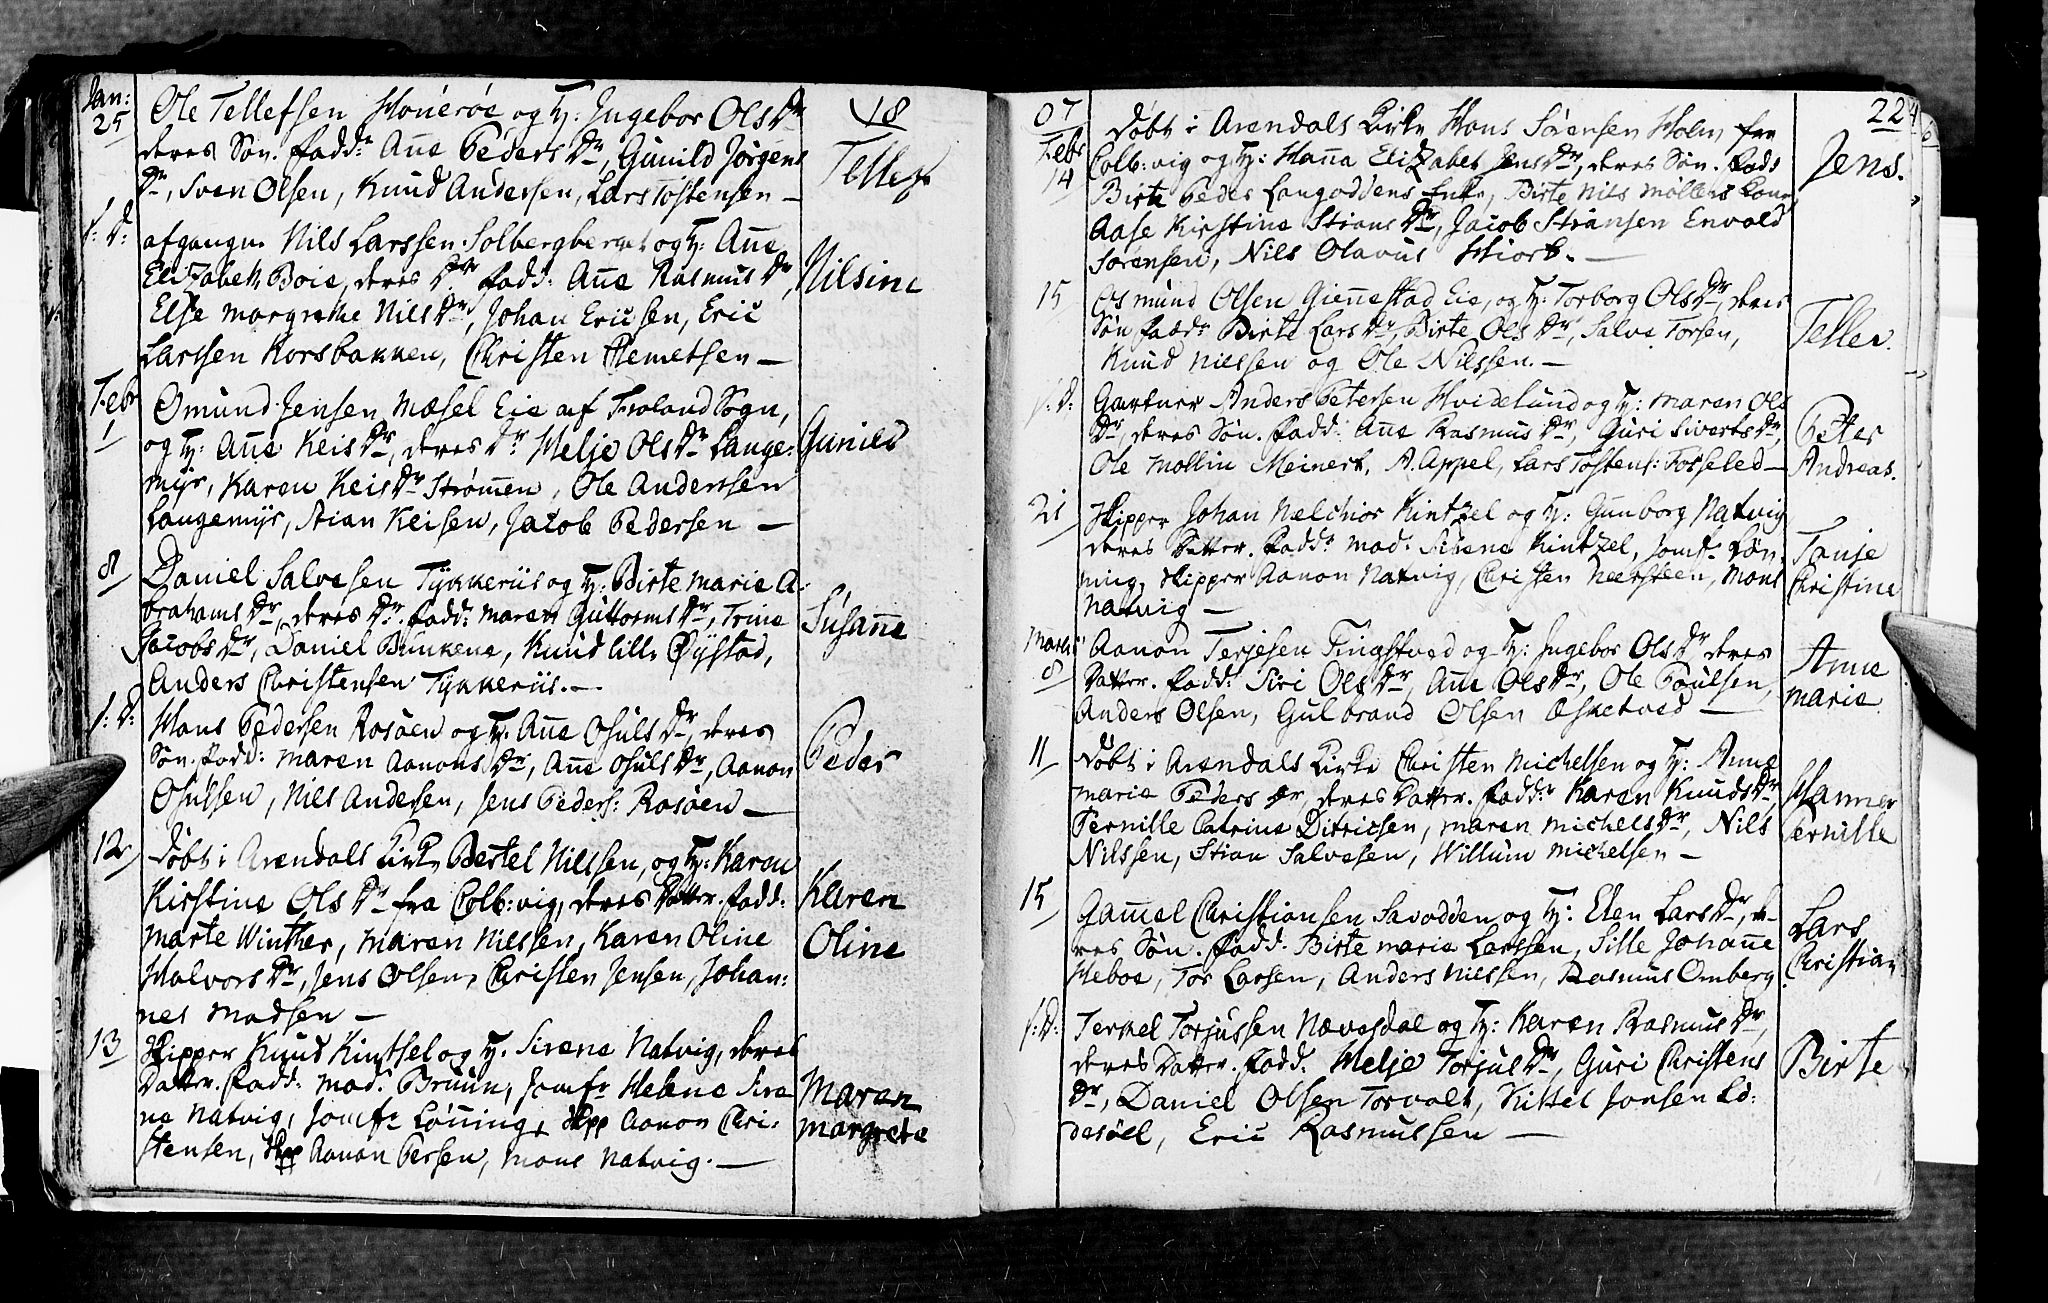 Jan: 18
25 Ole Tellefsen Houeröe og H: Ingebor Ols Dr
deres Søn. Fadd: Añe Peders Dr, Gunild Jörgens
Dr, Sven Olsen, Knud Andersen, Lars Tostensen — Tellef
s: D: afgangne Nils Larssen Solbergberget og H: Añe
Elizabeth Boie, deres Dr. Fadd: Añe Rasmus Dr, Nilsine
Else Margrethe Nils Dr, Johan Ericsen, Eric
Larssen Korsbakken, Christen Clemetsen —
Febr
1 Omund Jensen Mæsel Eie af Froland Sogn,
og H: Añe Keis Dr, deres Dr Helje Ols Dr Lange- Gunild
myr, Karen Keis Dr Strömen, Ole Anderssen
Langemyr, Stian Keisen, Jacob Pedersen —
8 Daniel Salvesen Tykkeriis og H: Birte Marie A-
brahams Dr, deres Dr. Fadd: Maren Guttorms Dr, Trine Susañe
Jacobs Dr, Daniel Bunkene, Knud lille Øystad,
Anders Christensen Tykkeriis. —
s: D: Hans Pedersen Rosöen og H: Añe Osuls Dr, deres
Søn. Fadd: Maren Aanons Dr, Añe Osuls Dr, Aanon Peder
Osulssen, Nils Andersen, Jens Peders: Rosöen —
12 Døbt i Arendals Kirke Bertel Nilssen, og H: Karen
Kirstine Ols Dr fra Colb:vig, deres Datter. Fadd: Karen
Marte Winther, Maren Nilssen, Karen Oline Oline
Halvors Dr, Jens Olsen, Christen Jensen, Johan:
nes Madsen —
13 Skipper Knud Kintsel og H. Sirene Natvig, deres
Datter. Fadd: Mad: Bruun, Jomfr Helene Sire Maren
ne Natvig, Jomfr Löñing, Skpp Aanon Chri- Margrete
stensen, Skpp Aanon Persen, Mons Natvig. —
07 22
Febr
14 Døbt i Arendals Kirke Hans Sörensen Holm, fra
Colb:vig og H: Haña Elizabet Jens Dr, deres Søn. Fadd Jens.
Birte Peder Langoddens Enke, Birte Nils Möllers Kone
Aase Kirstine Stians Dr, Jacob Stiansen Envold
Sörensen, Nils Olavus Hiort. —
15 Osmund Olsen Gieñestad Eie, og H: Torborg Ols Dr, deres
Søn Fadd: Birte Lars Dr, Birte Ols Dr, Salve Torsen, Tellev.
Knud Nilssen og Ole Nilssen. —
s: D: Gartner Anders Petersen Hvidelund og H: Maren Ols
Dr, deres Søn. Fadd: Añe Rasmus Dr, Guri Siverts Dr, Peter
Ole Mollin Meinert, A. Appel, Lars Tostens: Fosseled — Andreas.
21 Skipper Johan Melchior Kintzel og H: Gunborg Natvig
deres Datter. Fadd: Mad: Sirene Kintzel, Jomf: Löñ- Tanje
ning, Skipper Aanon Natvig, Christen Neersteen, Mons Christine
Natvig —
Martii
8 Aanon Terjesen Tingstved og H: Ingebor Ols Dr deres Anne
Datter. Fadd: Siri Ols Dr, Añe Ols Dr, Ole Poulsen, Marie
Anders Olsen, Gulbrand Olsen Æsketved —
11 Døbt i Arendals Kirke Christen Michelsen og H: Anne
Marie Peders Dr, deres Datter. Fadd: Karen Knuds Dr Hanne
Pernille Catrine Ditricsen, Maren Michels Dr, Nils Pernille
Nilssen, Stian Salvesen, Willum Michelsen —
15 Gamel Christiansen Savodden og H: Elen Lars Dr, de-
res Søn. Fadd: Birte Marie Larssen, Sille Johañe Lars
Heboe, Tor Larsen, Anders Nilssen, Rasmus Omberg Christian
s: D: Terkel Torjussen Nævesdal og H: Karen Rasmus Dr,
deres Datter. Fadd: Helje Torjus Dr, Guri Christens Birte
Dr, Daniel Olsen Torvolt, Kittel Jonsen Lö-
desöel, Eric Rasmussen —